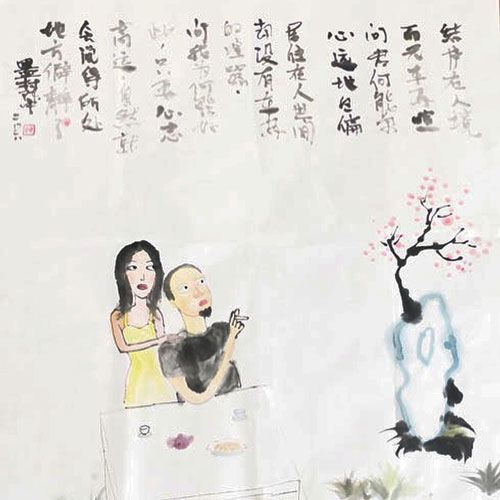 结庐在人境
而无车马喧
问君何能尔
心远地自偏
居住在人世间
却没有车马
的喧嚣
问我为何能如
此,只要心志
高远,自然就
会觉得所处
地方僻静了